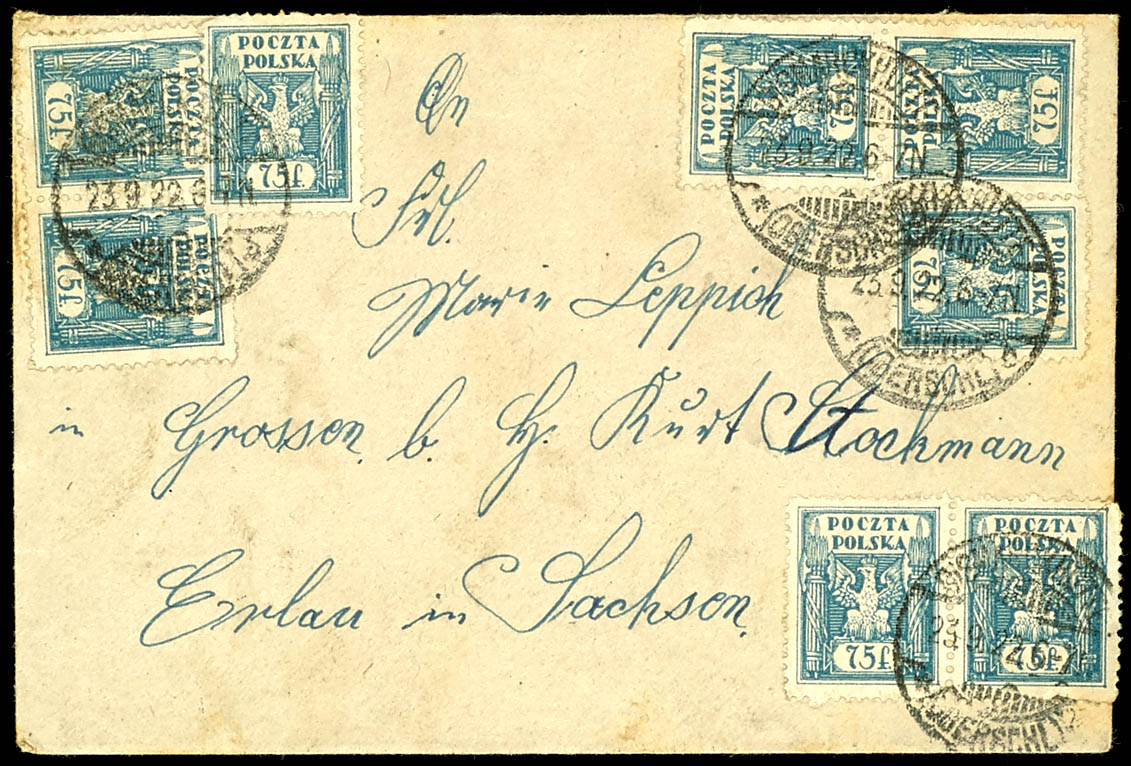 POCZTA
POLSKA
75f
POCZTA
POLSKA
75f
POCZTA
POLSKA
75f
23.9.22.6-7N
POCZTA
POLSKA
75f
POCZTA
POLSKA
75f
POCZTA
POLSKA
75f
23.9.22.6-7N
(OBERSCHL.)
23.9.22.6-7N
(OBERSCHL.)
An
Frl.
Marie Leppich
in Grossen b. H. Kurt Stockmann
Erlau in Sachsen.
POCZTA
POLSKA
75f
POCZTA
POLSKA
75f
23.9.22.6-7N
(OBERSCHL.)